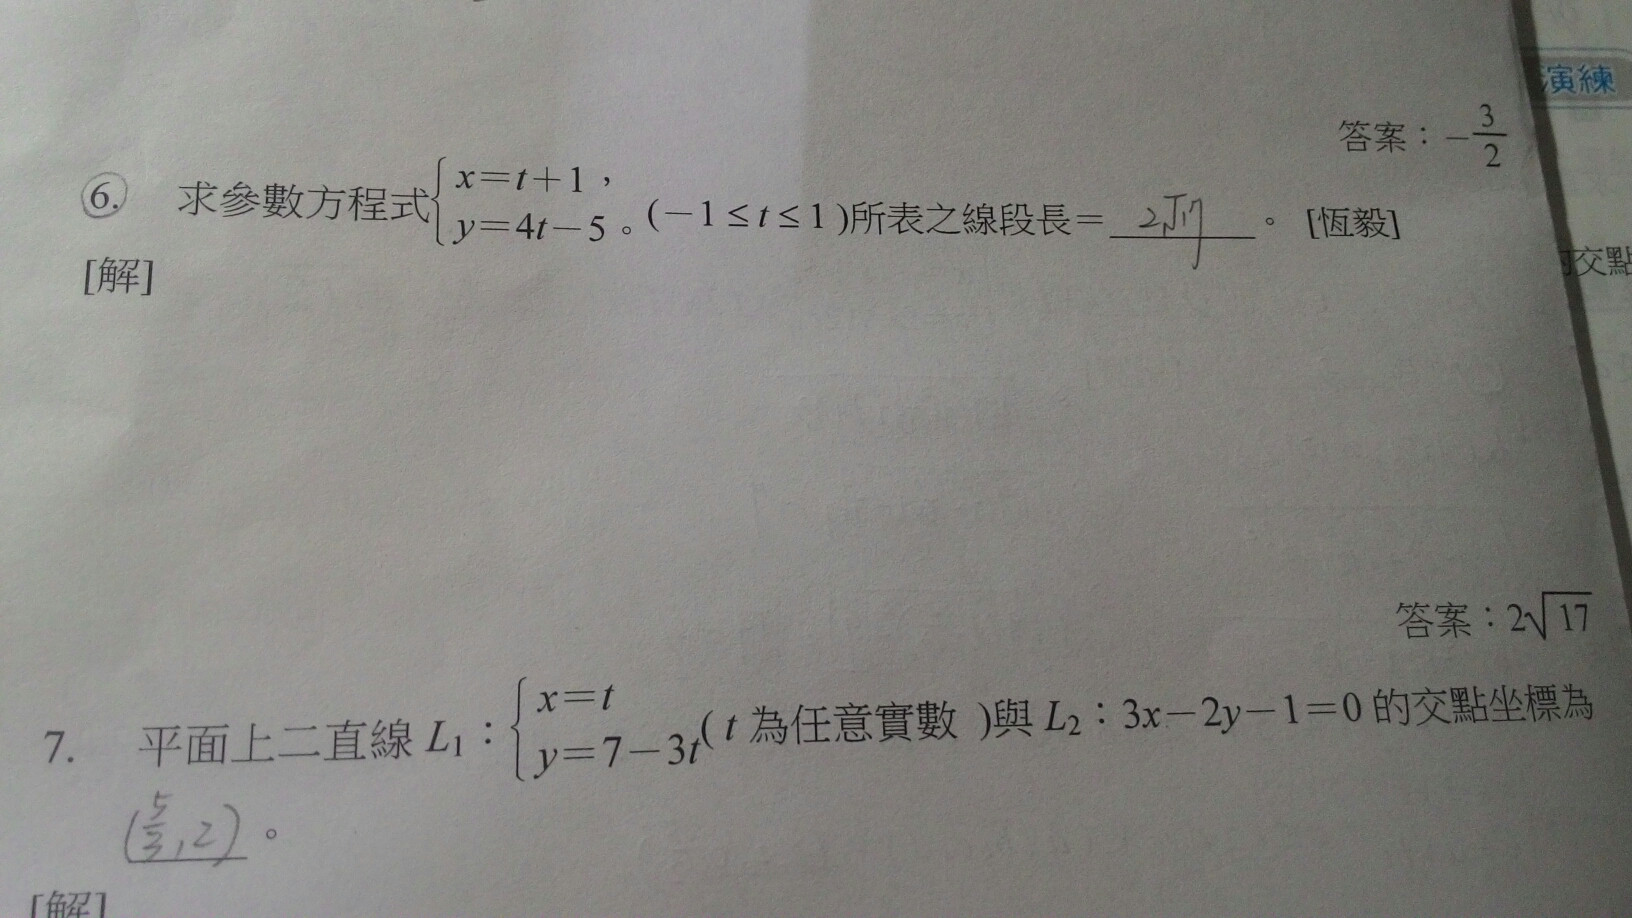 演練
答案：-3/2
6. 求參數方程式{x=t+1，y=4t-5。(-1≤t≤1)所表之線段長=2√17。[恆毅]
交點
[解]
答案：2√17
7. 平面上二直線 L₁：{x=t y=7-3t (t 為任意實數 )與 L₂：3x-2y-1=0 的交點坐標為
(5/3,2)。
[解]